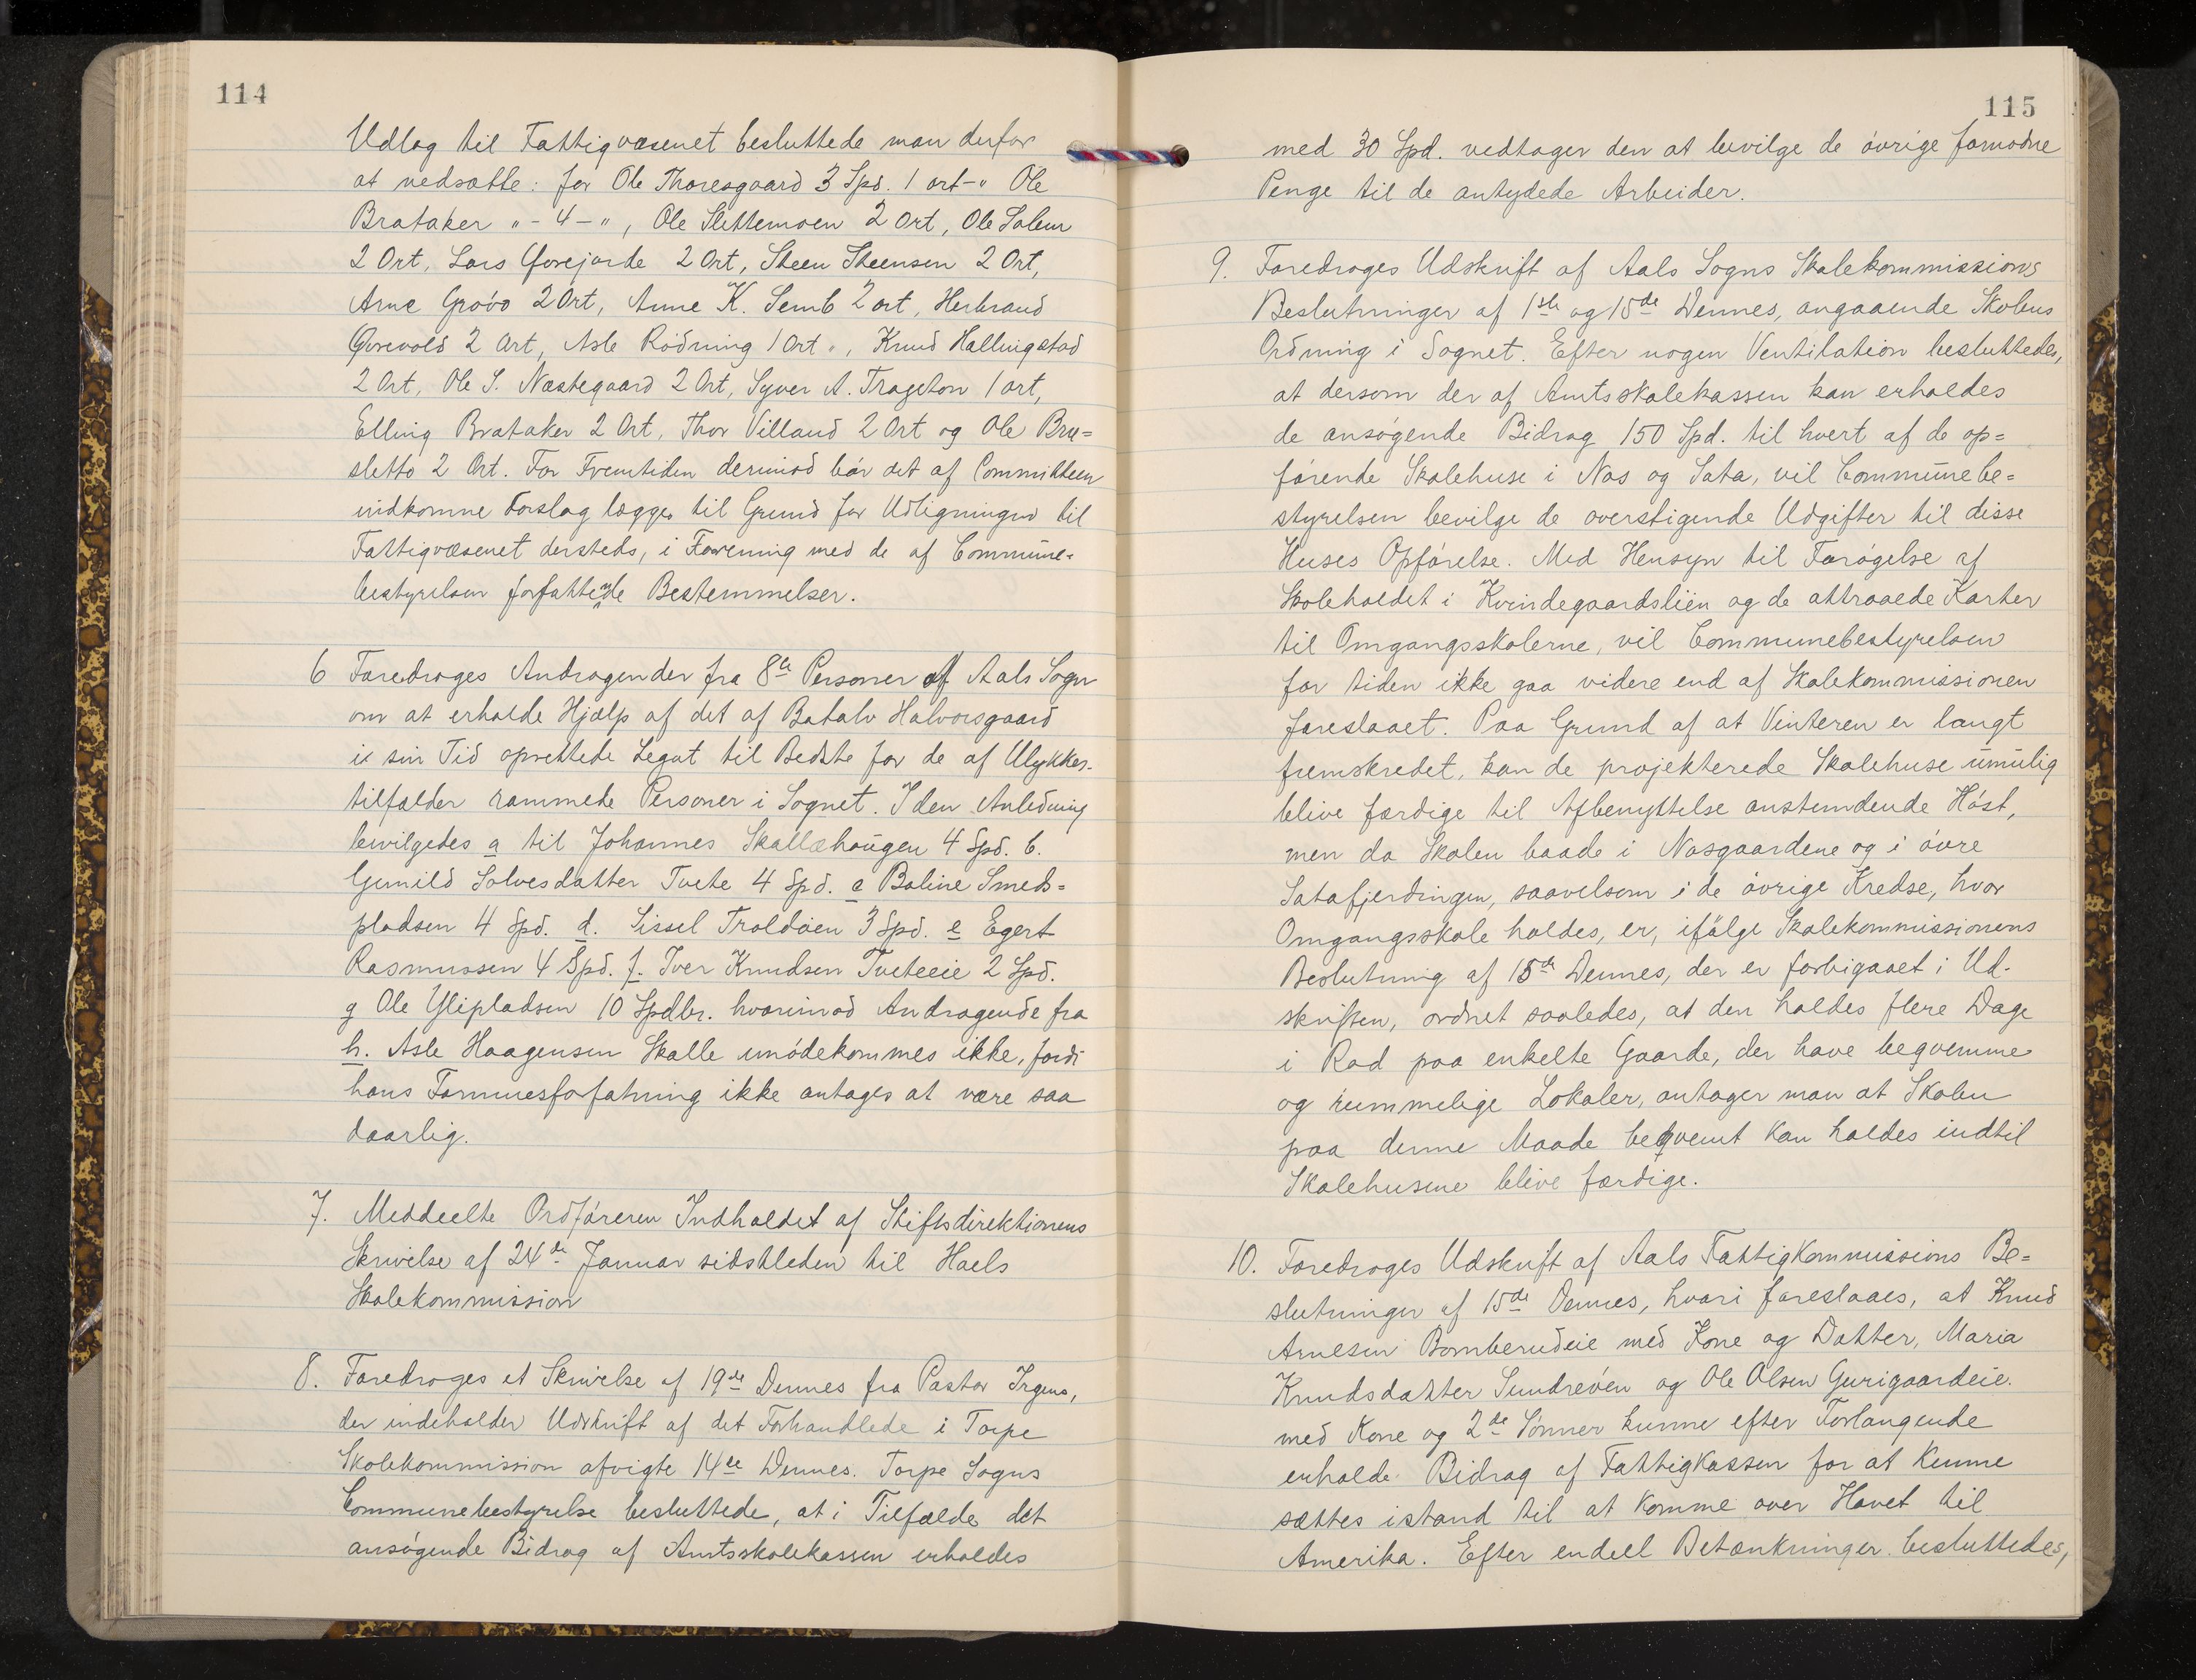 114
Udlæg til Fattigvæsenet besluttede man derfor
at nedsætte: for Ole Thoresgaard 3 Spd. 1 ort-" Ole
Brataker " - 4 - ", Ole Slettemoen 2 Ort, Ole Solem
2 Ort, Lars Gurejorde 2 Ort, Steen Steensen 2 Ort,
Arne Grøvo 2 Ort, Anne K. Semb 2 ort, Herbrand
Qvrevold 2 Ort, Asle Rødning 1 Ort ", Knud Hallingstad
2 Ort, Ole S. Næstegaard 2 Ort, Syver A. Trageton 1 ort,
Elling Brataker 2 Ort, Thor Villand 2 Ort og Ole Bru=
sletto 2 Ort. For Fremtiden derimod bør det af Committeen
indkomne Forslag lægges til Grund for Udligningen til
Fattigvæsenet dersteds, i Forening med de af Commune-
bestyrelsen forfattende Bestemmelser.
6 Foredroges Andragender fra 8te Personer af Aals Sogn
om at erholde Hjælp af det af Botolv Halvorsgaard
i sin Tid oprettede Legat til Bedste for de af Ulykkes-
tilfælder rammede Personer i Sognet. I den Anledning
bevilgedes a til Johannes Skallæhaugen 4 Spd. b.
Gunild Solvesdatter Tvete 4 Spd. c Boline Smeds=
pladsen 4 Spd. d. Sissel Troldøen 3 Spd. e Egert
Rasmussen 4 Spd. f. Iver Knudsen Tveteeie 2 Spd.
g Ole Ylipladsen 10 Spdlr. hvorimod Andragende fra
h. Asle Haagensen Skalle imødekommes ikke, fordi
hans Formuesforfatning ikke antages at være saa
daarlig.
7. Meddeelte Ordføreren Indholdet af Stiftsdirektionens
Skrivelse af 24de Januar sidstleden til Haels
Skolekommission
8. Foredroges et Skrivelse af 19de Dennes fra Pastor Irgens,
der indeholder Udskrift af det Forhandlede i Torpe
Skolekommission afvigte 14de Dennes. Torpe Sogns
Communebestyrelse besluttede, at i Tilfælde det
ansøgende Bidrag af Amtsskolekassen erholdes
115
med 30 Spd. vedtager den at bevilge de øvrige fornødne
Penge til de antydede Arbeider.
9. Foredroges Udskrift af Aals Sogns Skolekommissions
Beslutninger af 1ste og 15de Dennes, angaaende Skolens
Ordning i Sognet. Efter nogen Ventilation besluttedes,
at dersom der af Amtsskolekassen kan erholdes
de ansøgende Bidrag 150 Spd. til hvert af de op=
førende Skolehuse i Nos og Sata, vil Communebe=
styrelsen bevilge de overstigende Udgifter til disse
Huses Opførelse. Med Hensyn til Forøgelse af
Skoleholdet i Kvindegaardslien og de attraaede Karter
til Omgangsskolerne, vil Communebestyrelsen
for tiden ikke gaa videre end af Skolekommissionen
foreslaaet. Paa Grund af at Vinteren er langt
fremskredet, kan de projekterede Skolehuse umulig
blive færdige til Afbenyttelse anstundende Høst,
men da Skolen baade i Nosgaardene og i øvre
Satafjerdingen, saavelsom i de øvrige Kredse, hvor
Omgangsskole holdes, er, ifølge Skolekommissionens
Beslutning af 15de Dennes, der er forbigaaet i Ud-
skriften, ordnet saaledes, at den holdes flere Dage
i Rad paa enkelte Gaarde, der have beqvemme
og rummelige Lokaler, antager man at Skolen
paa denne Maade beqvemt kan holdes indtil
Skolehusene blive færdige.
10. Foredroges Udskrift af Aals Fattigkommissions Be=
slutninger af 15de Dennes, hvori foreslaaes, at Knud
Arnesen Bomberudeie med Kone og Datter, Maria
Knudsdatter Sundreøen og Ole Olsen Gurigaardeie.
med Kone og 2de Sønner kunne efter Forlangende
erholde Bidrag af Fattigkassen for at kunne
sættes istand til at komme over Havet til
Amerika. Efter endeel Betænkninger besluttedes,